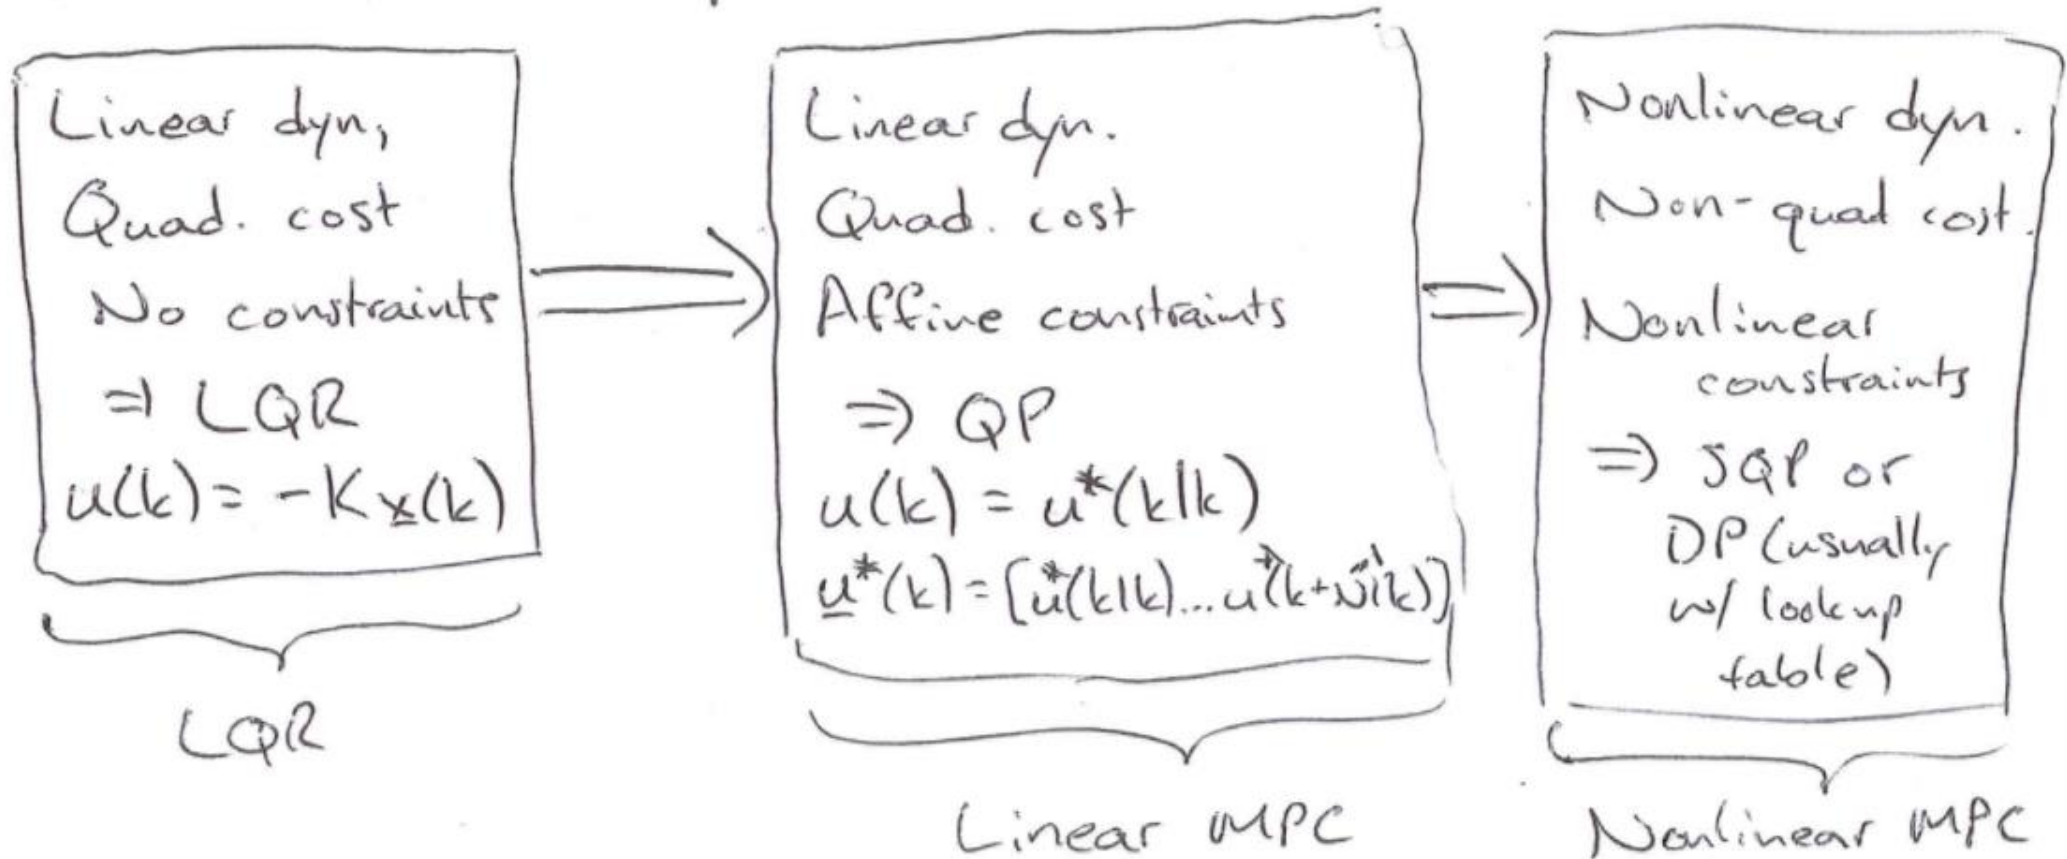 Linear dyn,
Quad. cost
No constraints
⇒ LQR
u(k) = -Kx(k)
LQR
Linear dyn.
Quad. cost
Affine constraints
⇒ QP
u(k) = u*(k|k)
u*(k) = [u*(k|k)...u*(k+N-1|k)]
Linear MPC
Nonlinear dyn.
Non-quad cost.
Nonlinear
constraints
⇒ SQP or
DP (usually
w/ lookup
table)
Nonlinear MPC